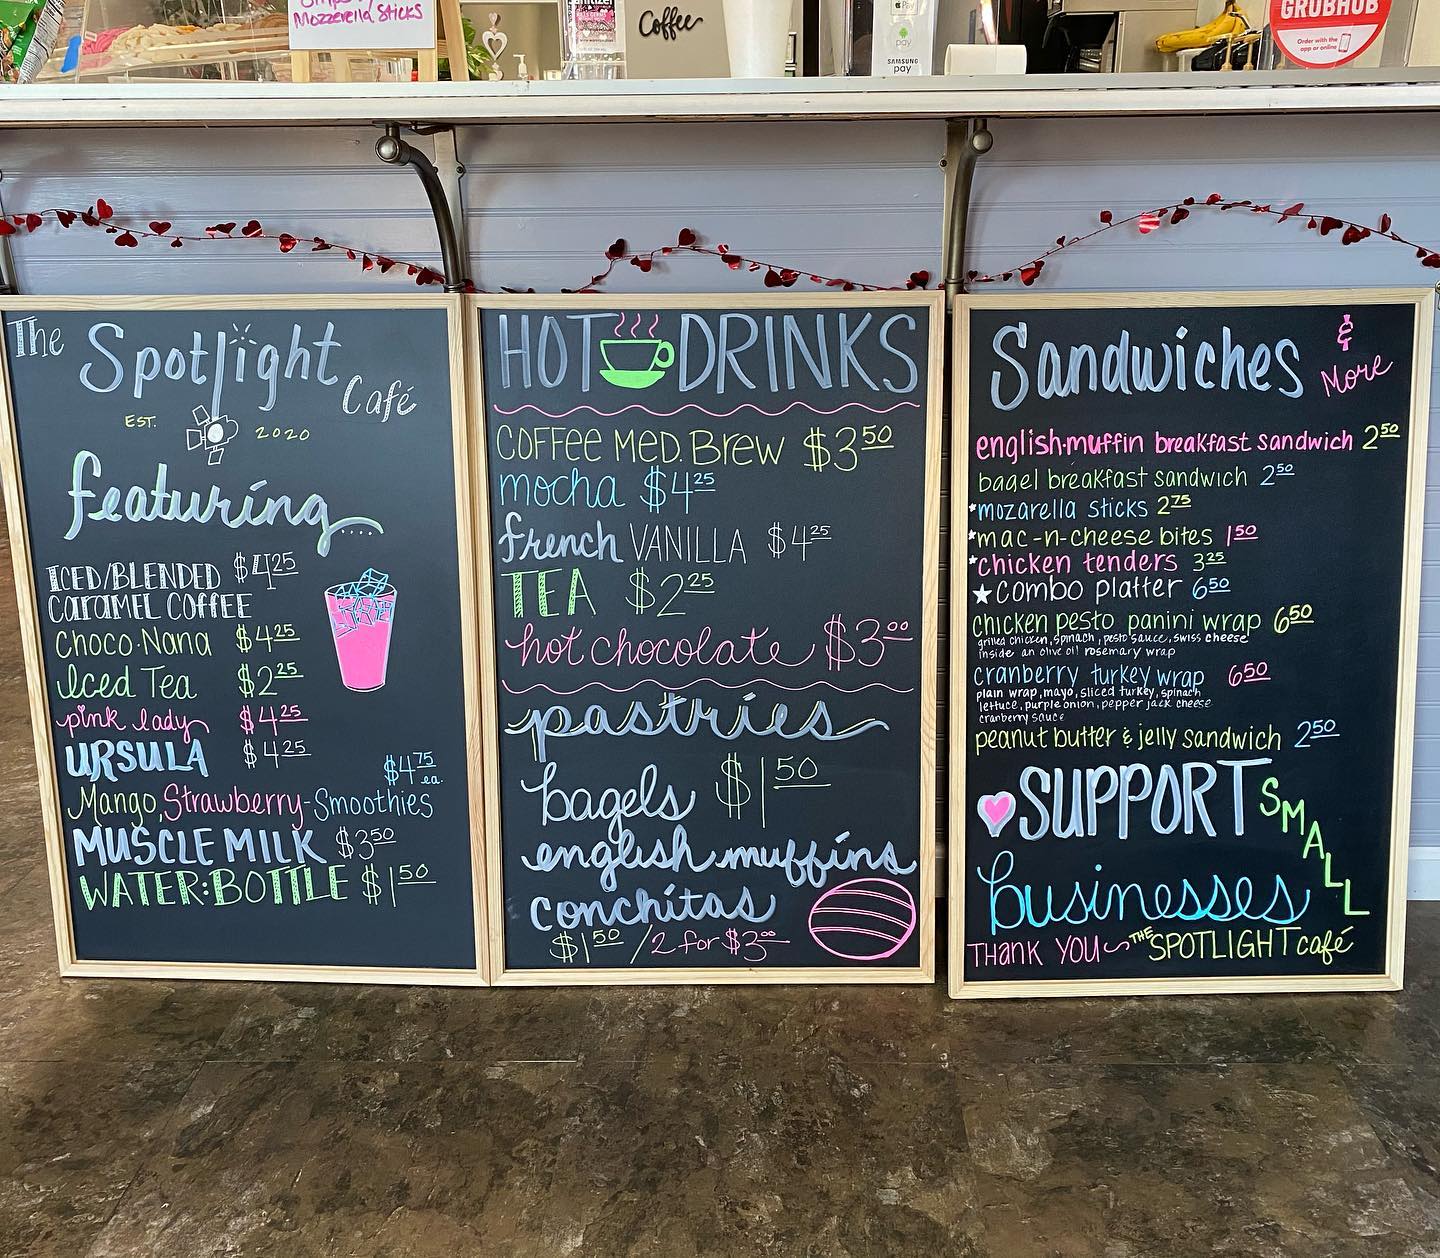 Mozzerella Sticks
Coffee
Pay
pay
SAMSUNG
pay
GRUBHUB
Order with the
app or online
The Spotlight Café
EST. 2020
featuring....
ICED/BLENDED $4.25
CARAMEL COFFEE
Choco-Nana $4.25
Iced Tea $2.25
pink lady $4.25
URSULA $4.25
$4.75 ea.
Mango, Strawberry-Smoothies
MUSCLE MILK $3.50
WATER:BOTTLE $1.50
HOT DRINKS
COFFEE MED. Brew $3.50
mocha $4.25
french VANILLA $4.25
TEA $2.25
hot chocolate $3.00
pastries
bagels $1.50
english muffins
conchitas
$1.50 / 2 for $3.00
Sandwiches & More
english-muffin breakfast sandwich 2.50
bagel breakfast sandwich 2.50
*mozarella sticks 2.75
*mac-n-cheese bites 1.50
*chicken tenders 3.25
★combo platter 6.50
chicken pesto panini wrap 6.50
grilled chicken, spinach, pesto sauce, swiss cheese
inside an olive oil rosemary wrap
cranberry turkey wrap 6.50
plain wrap, mayo, sliced turkey, spinach
lettuce, purple onion, pepper jack cheese
cranberry sauce
peanut butter & jelly sandwich 2.50
SUPPORT SMALL
businesses
THANK YOU~THE SPOTLIGHT café